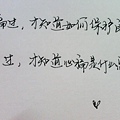 痛过，才知道如何保护自
过，才知道心痛是什么